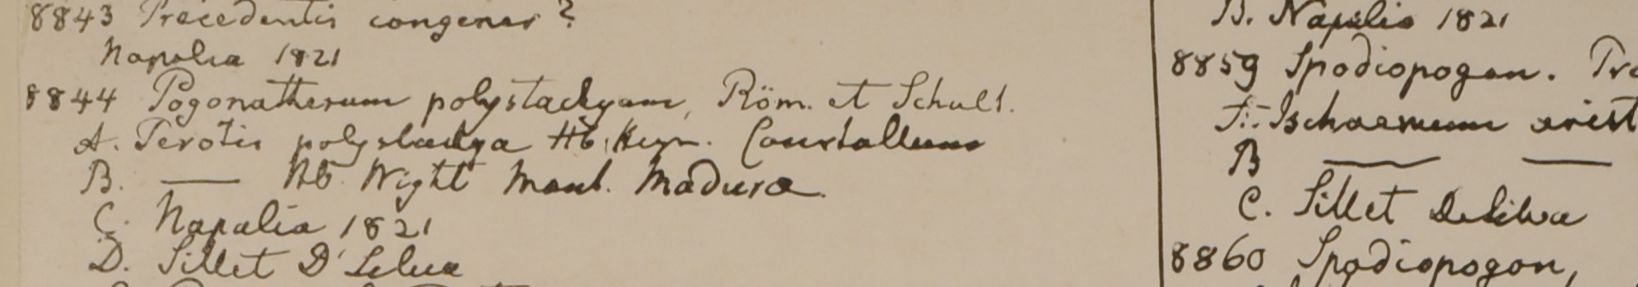 8843 Precedentis congener?
Napalia 1821
8844 Pogonatherum polystachyum, Röm. et Schult.
A. Perotis polystachya Hb. Heyn. Courtallum
B. —— Hb. Wight Mont. Madura.
C. Napalia 1821
D. Sillet D'Silua
B. Napalia 1821
8859 Spodiopogon. Pre
F. Ischaemum arist
B —— ——
C. Sillet DeSilva
8860 Spodiopogon,